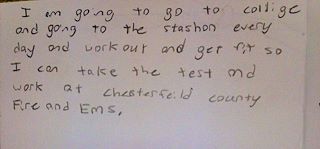 I am going to go to collige
and going to the stashon every
day and work out and get fit so
I can take the test and
work at chesterfeild county
Fire and Ems,